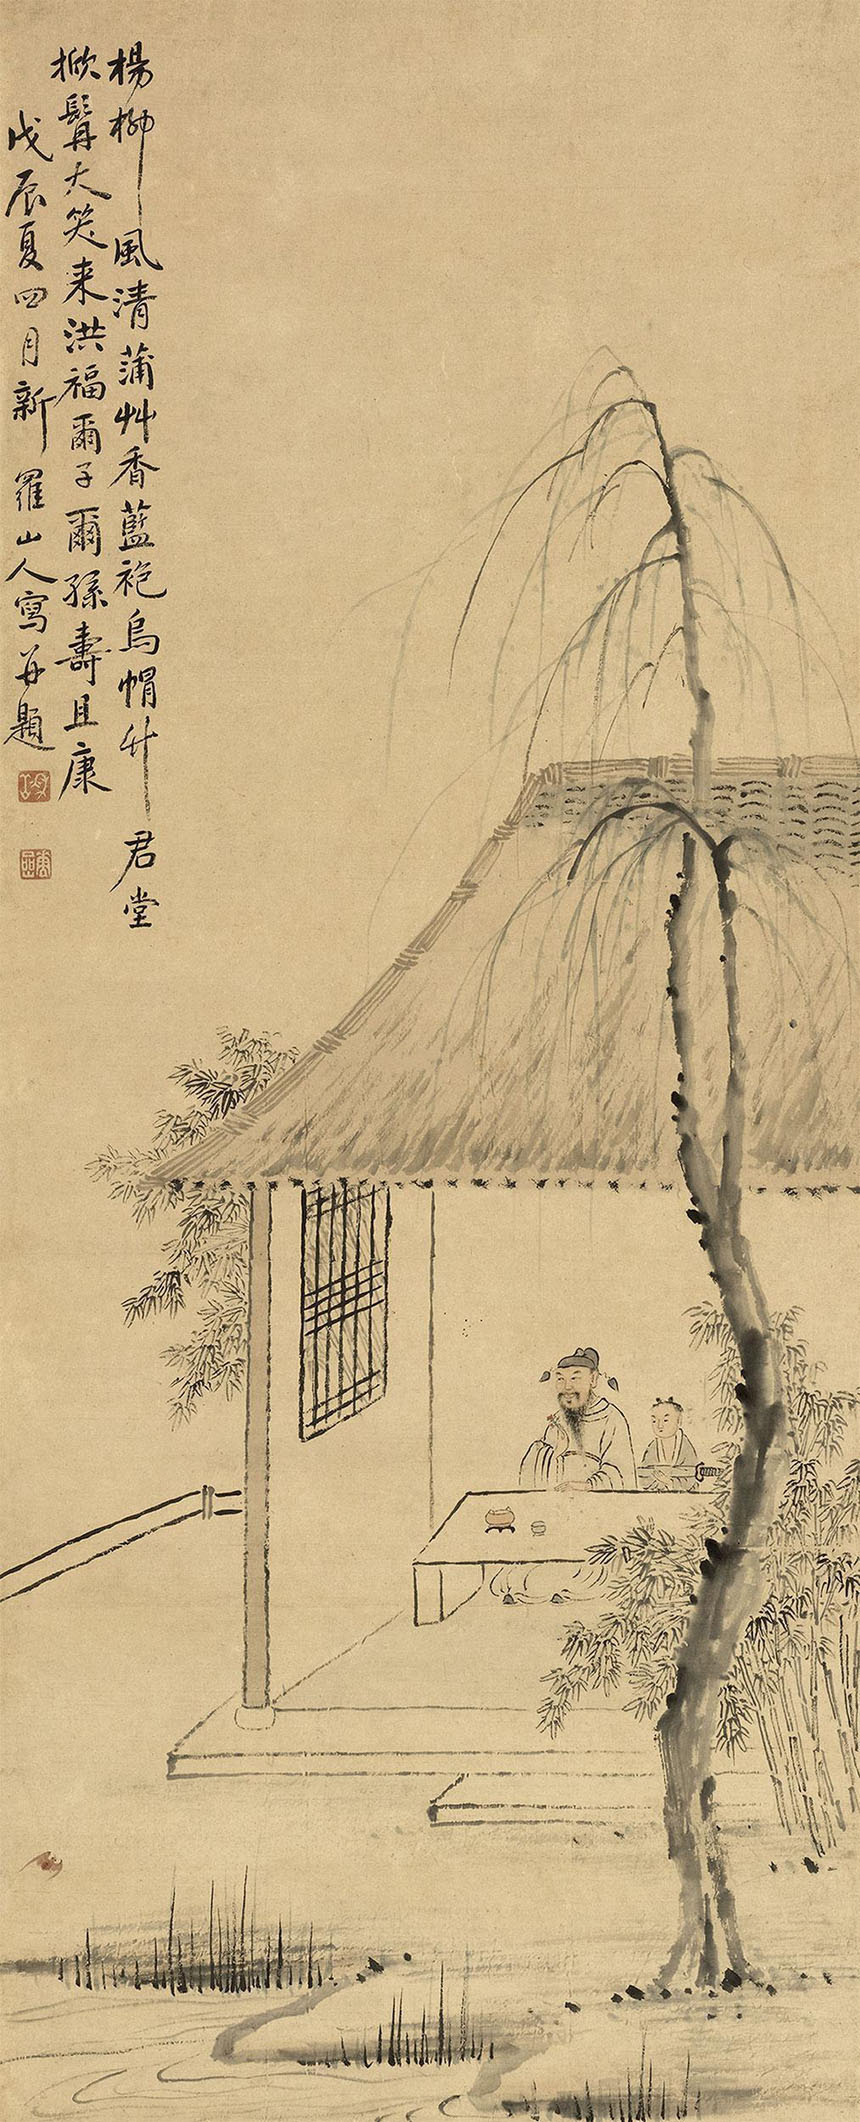 楊柳風清蒲艸香藍袍烏帽升君堂
掀髯大笑来洪福爾子爾孫壽且康
戊辰夏四月新羅山人寫并題